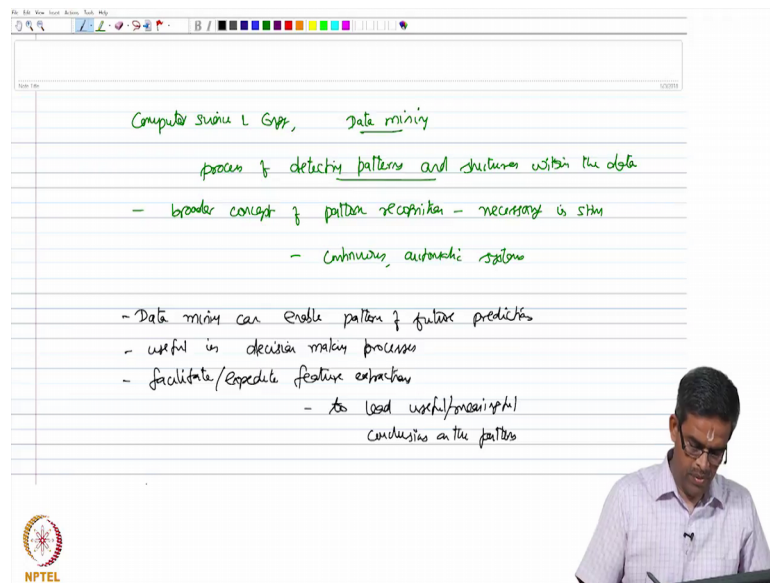 File Edit View Insert Actions Tools Help
B I
Note Title
Computer Science & Engg, Data mining
process of detecting patterns and structures within the data
- broader concept of pattern recognition - necessary in SHM
- continuous, automatic systems
- Data mining can enable pattern of future prediction
- useful in decision making processes
- facilitate/expedite feature extraction
- to lead useful/meaningful
conclusion on the pattern
NPTEL